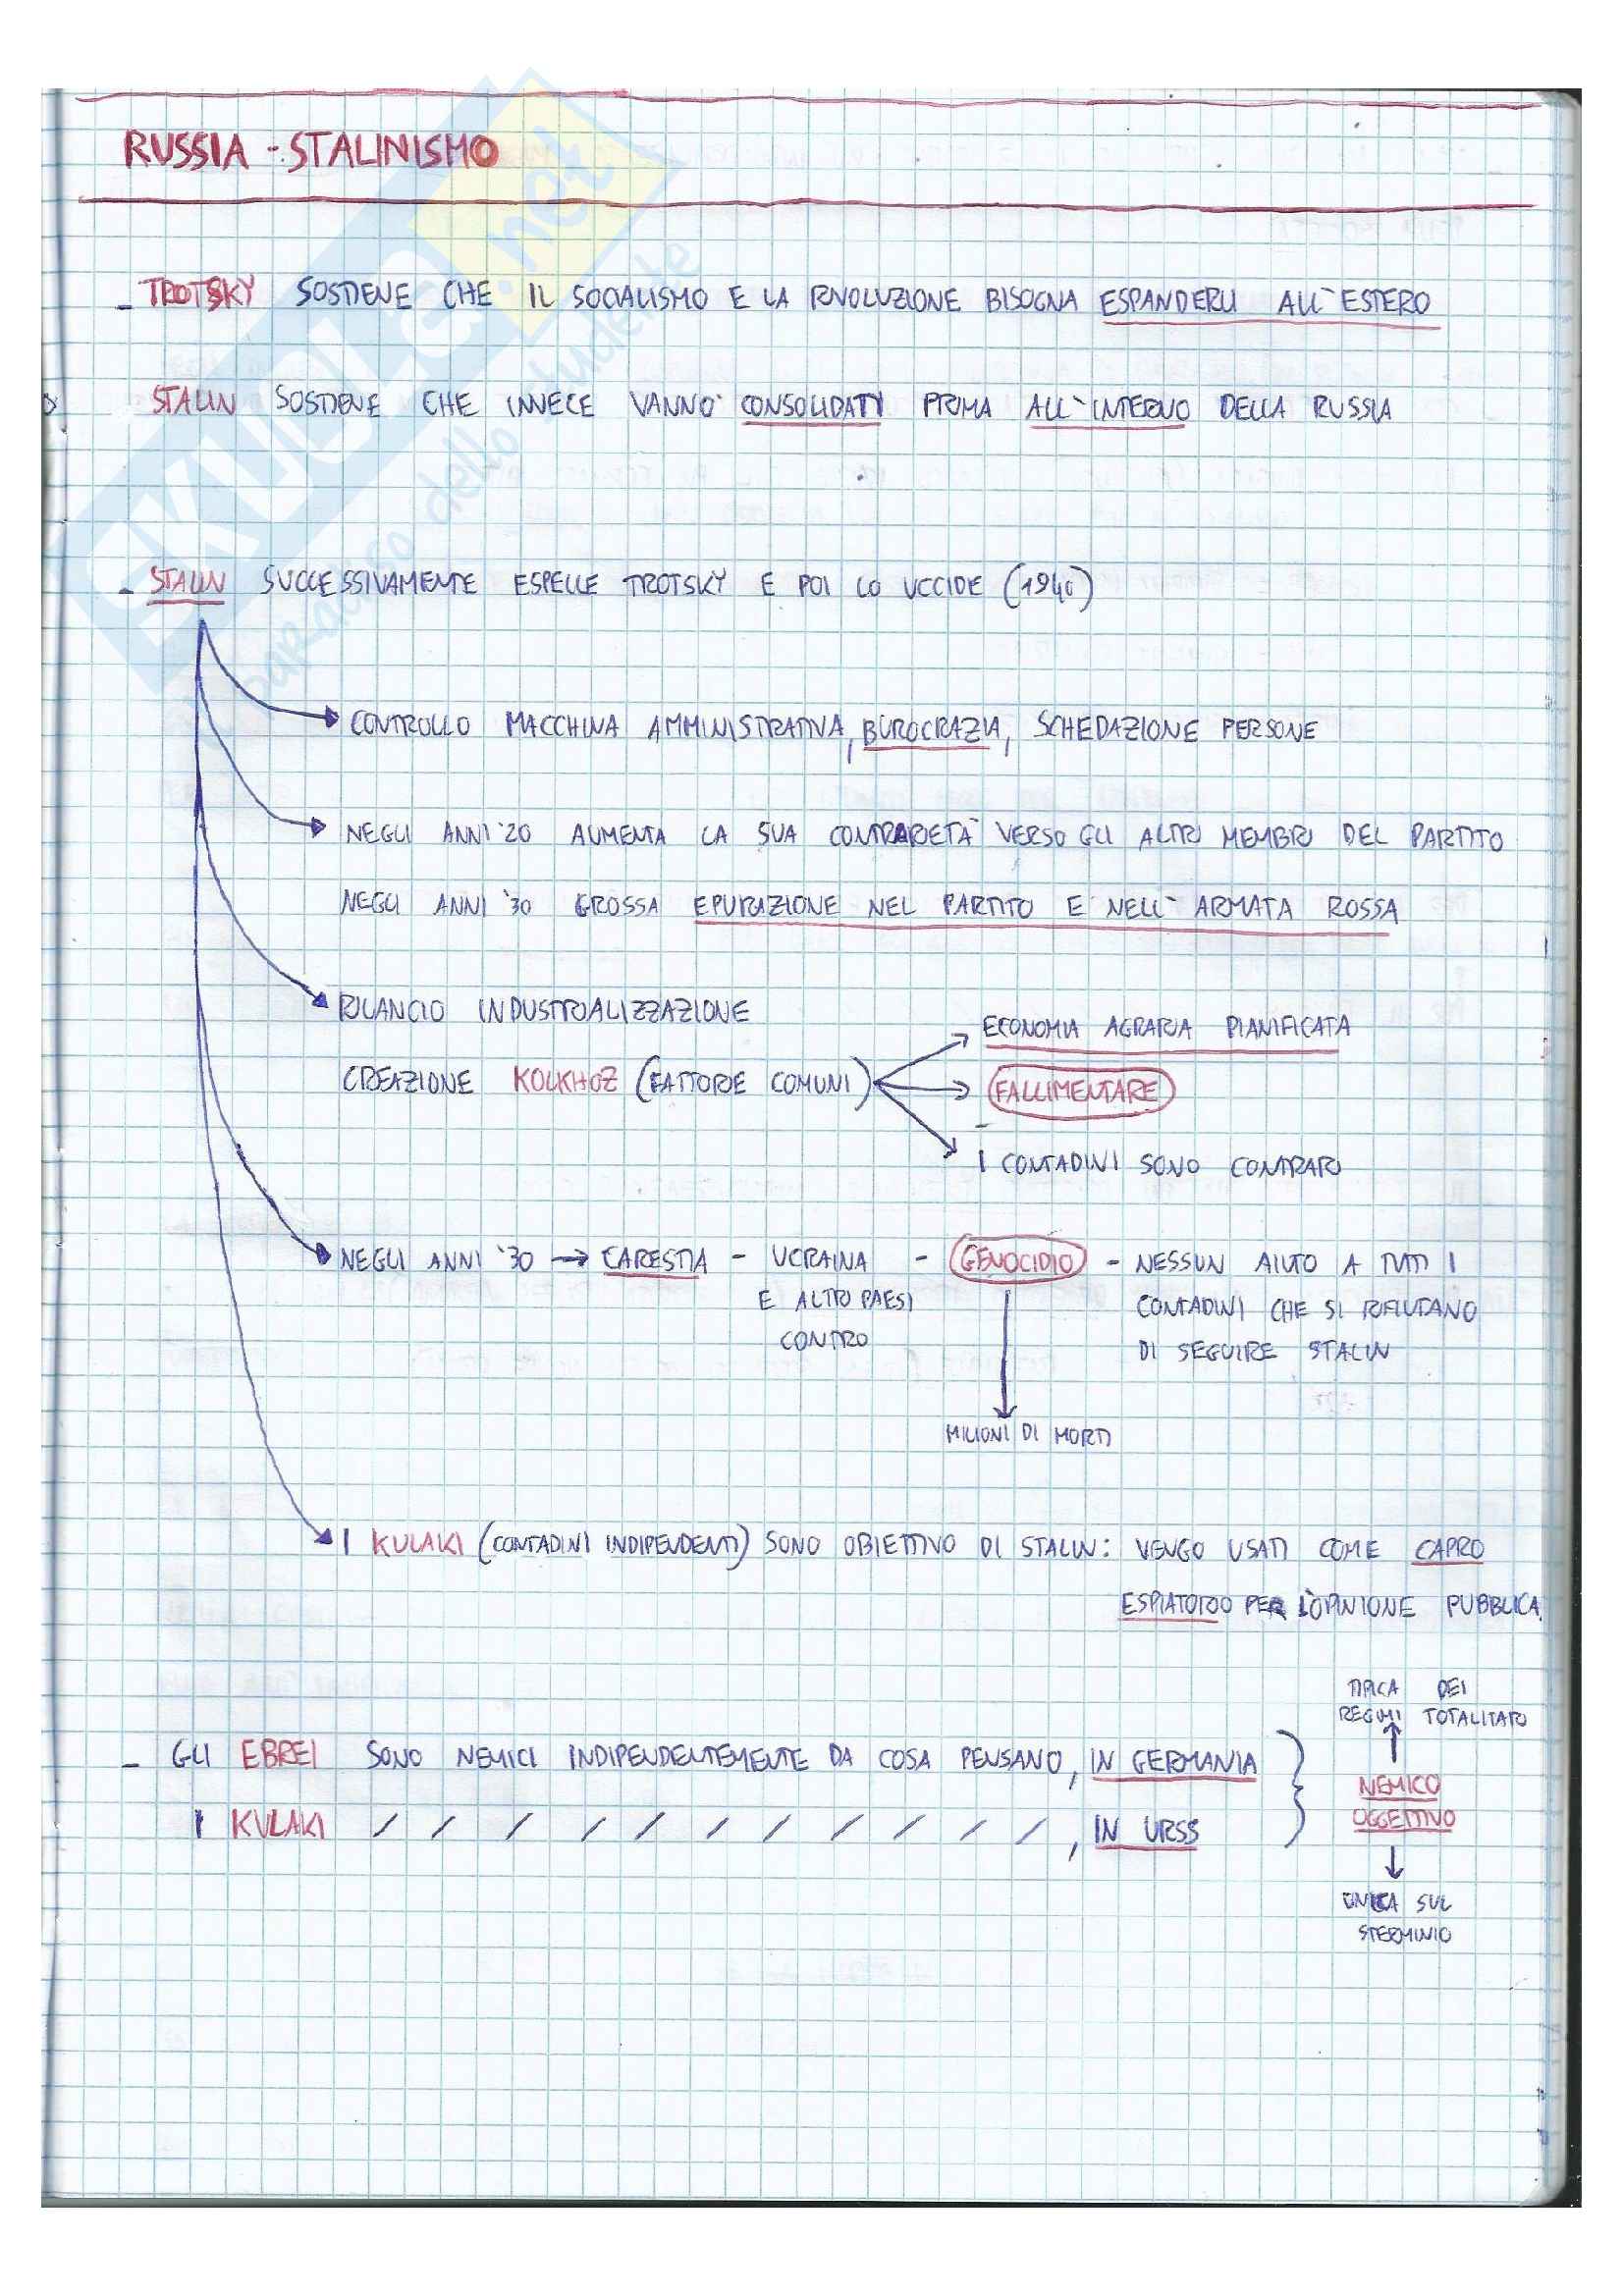 RUSSIA - STALINISMO
- TROTSKY SOSTIENE CHE IL SOCIALISMO E LA RIVOLUZIONE BISOGNA ESPANDERLI ALL'ESTERO
STALIN SOSTIENE CHE INVECE VANNO CONSOLIDATI PRIMA ALL'INTERNO DELLA RUSSIA
- STALIN SUCCESSIVAMENTE ESPELLE TROTSKY E POI LO UCCIDE (1940)
CONTROLLO MACCHINA AMMINISTRATIVA, BUROCRAZIA, SCHEDAZIONE PERSONE
NEGLI ANNI '20 AUMENTA LA SUA CONTRARIETÀ VERSO GLI ALTRI MEMBRI DEL PARTITO
NEGLI ANNI '30 GROSSA EPURAZIONE NEL PARTITO E NELL'ARMATA ROSSA
RILANCIO INDUSTRIALIZZAZIONE
CREAZIONE KOLKHOZ (FATTORIE COMUNI)
ECONOMIA AGRARIA PIANIFICATA
FALLIMENTARE
I CONTADINI SONO CONTRARI
NEGLI ANNI '30 → CARESTIA - UCRAINA - GENOCIDIO - NESSUN AIUTO A TUTTI I
E ALTRI PAESI CONTADINI CHE SI RIFIUTANO
CONTRO DI SEGUIRE STALIN
MILIONI DI MORTI
I KULAKI (CONTADINI INDIPENDENTI) SONO OBIETTIVO DI STALIN: VENGO USATI COME CAPRO
ESPIATORIO PER L'OPINIONE PUBBLICA
TIPICA DEI
REGIMI TOTALITARI
- GLI EBREI SONO NEMICI INDIPENDENTEMENTE DA COSA PENSANO, IN GERMANIA
NEMICO
OGGETTIVO
I KULAKI / / / / / / / / / / /, IN URSS
UNICA SUL
STERMINIO
SKUOLA.net
paradiso dello studente